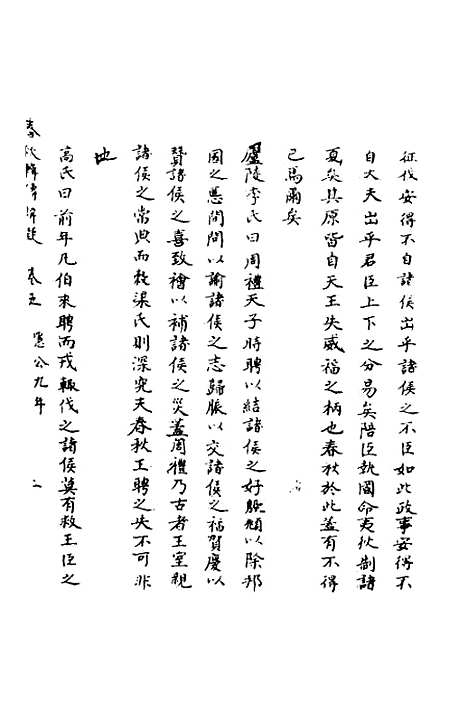 征伐安得不自諸侯出乎諸侯之不臣如此政事安得不
自大夫出乎君臣上下之分易矣陪臣執國命夷狄制諸
夏矣其原皆自天王失威福之柄也春秋於此蓋有不得
已焉爾矣
廬陵李氏曰周禮天子時聘以結諸侯之好殷頫以除邦
國之慝間問以諭諸侯之志歸脤以交諸侯之福賀慶以
贊諸侯之喜致禬以補諸侯之災蓋周禮乃古者王室親
諸侯之常典而穀梁氏則深究夫春秋王聘之失不可非
也
高氏曰前年凡伯來聘而戎輒伐之諸侯莫有救王臣之
春秋 卷五 隱公九年